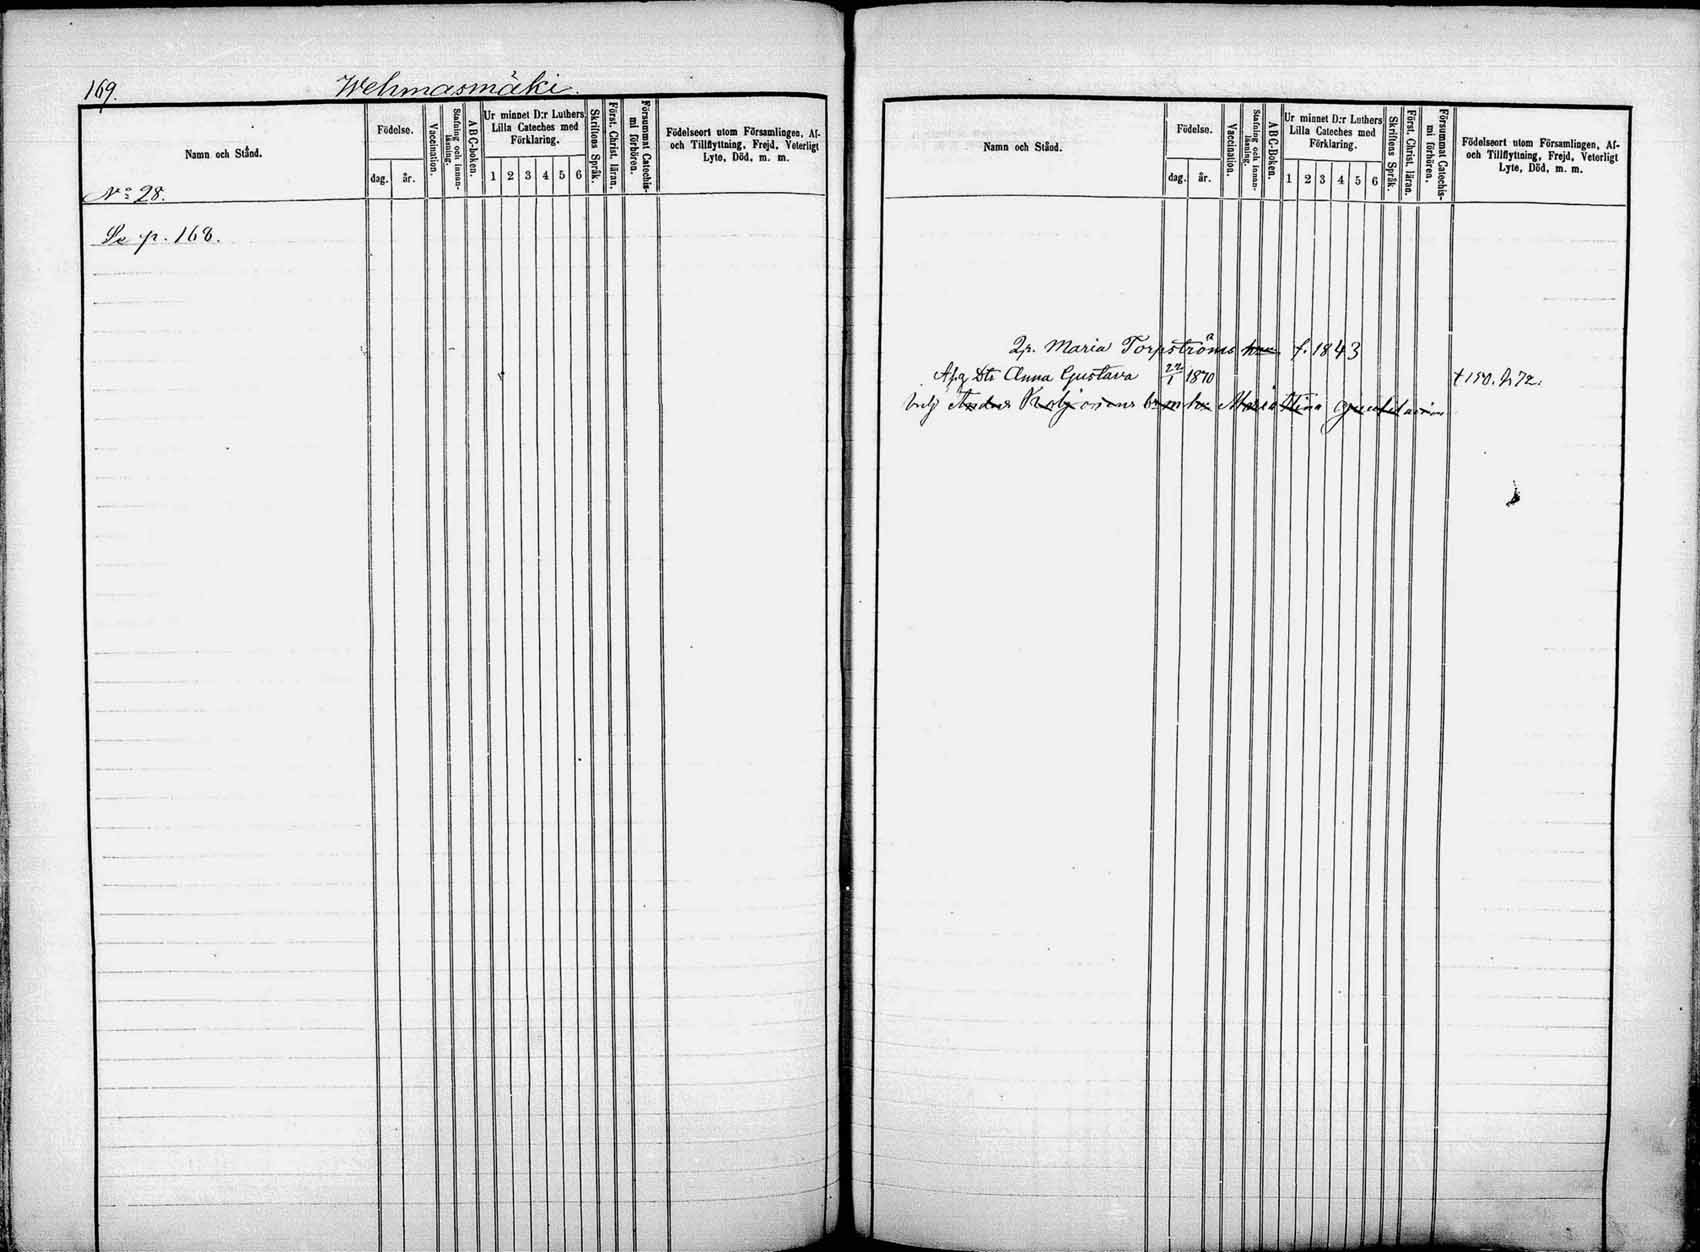 169. Wehmasmäki.
Namn och Stånd.
Födelse.
dag. år.
Vaccination.
Stafning och innan-
läsning.
ABC-boken.
Ur minnet D:r Luthers
Lilla Cateches med
Förklaring.
1 2 3 4 5 6
Skriftens Språk.
Först. Christ. läran.
Försummat Catechis-
mi förhören.
Födelseort utom Församlingen, Af-
och Tillflyttning, Frejd, Veterligt
Lyte, Död, m. m.
No 28.
Se p. 168.
Namn och Stånd.
Födelse.
dag. år.
Vaccination.
Stafning och innan-
läsning.
ABC-boken.
Ur minnet D:r Luthers
Lilla Cateches med
Förklaring.
1 2 3 4 5 6
Skriftens Språk.
Först. Christ. läran.
Försummat Catechis-
mi förhören.
Födelseort utom Församlingen, Af-
och Tillflyttning, Frejd, Veterligt
Lyte, Död, m. m.
Maria Torpströms f. 1843
Dtr Anna Gustava 22/1 1870
Maria Stina